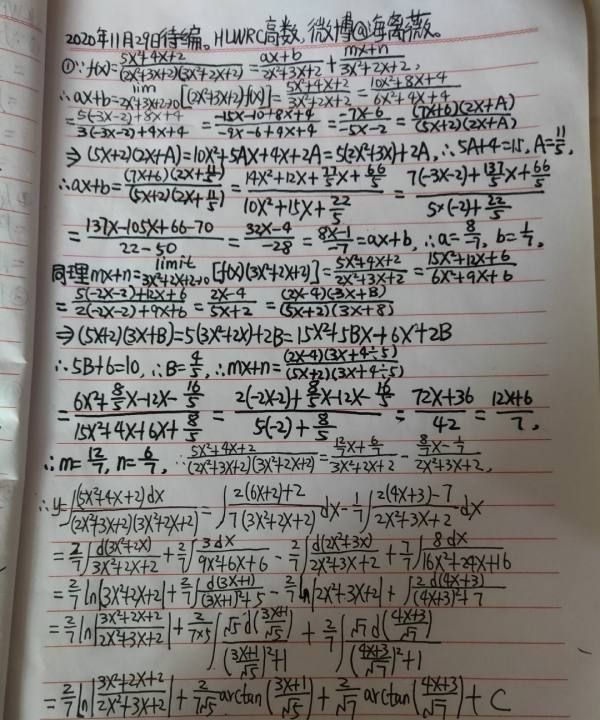 2020年11月29日待编。HLWRC高数,微博@海离薇。
①∵f(x)=(5x²+4x+2)/((2x²+3x+2)(3x²+2x+2))=(ax+b)/(2x²+3x+2)+(mx+n)/(3x²+2x+2),
∴ax+b=lim 2x²+3x+2→0[(2x²+3x+2)f(x)]=(5x²+4x+2)/(3x²+2x+2)=(10x²+8x+4)/(6x²+4x+4)
=(5(-3x-2)+8x+4)/(3(-3x-2)+4x+4)=(-15x-10+8x+4)/(-9x-6+4x+4)=(-7x-6)/(-5x-2)=((7x+6)(2x+A))/((5x+2)(2x+A))
⇒(5x+2)(2x+A)=10x²+5Ax+4x+2A=5(2x²+3x)+2A,∴5A+4=15,A=11/5,
∴ax+b=((7x+6)(2x+11/5))/((5x+2)(2x+11/5))=(14x²+12x+77/5x+66/5)/(10x²+15x+22/5)=(7(-3x-2)+137/5x+66/5)/(5×(-2)+22/5)
=(137x-105x+66-70)/(22-50)=(32x-4)/(-28)=(8x-1)/(-7)=ax+b,∴a=8/-7,b=1/7,
同理mx+n=limit 3x²+2x+2→0[f(x)(3x²+2x+2)]=(5x²+4x+2)/(2x²+3x+2)=(15x²+12x+6)/(6x²+9x+6)
=(5(-2x-2)+12x+6)/(2(-2x-2)+9x+6)=(2x-4)/(5x+2)=((2x-4)(3x+B))/((5x+2)(3x+B))
⇒(5x+2)(3x+B)=5(3x²+2x)+2B=15x²+5Bx+6x+2B
∴5B+6=10,∴B=4/5,∴mx+n=((2x-4)(3x+4÷5))/((5x+2)(3x+4÷5))
=(6x²+8/5x-12x-16/5)/(15x²+4x+6x+8/5)=(2(-2x-2)+8/5x-12x-16/5)/(5(-2)+8/5)=(72x+36)/42=(12x+6)/7,
∴m=12/7,n=6/7,∵(5x²+4x+2)/((2x²+3x+2)(3x²+2x+2))=(12/7x+6/7)/(3x²+2x+2)-(8/7x-1/7)/(2x²+3x+2),
∴y=∫(5x²+4x+2)dx/((2x²+3x+2)(3x²+2x+2))=∫(2(6x+2)+2)/(7(3x²+2x+2))dx-1/7∫(2(4x+3)-7)/(2x²+3x+2)dx
=2/7∫d(3x²+2x)/(3x²+2x+2)+2/7∫3dx/(9x²+6x+6)-2/7∫d(2x²+3x)/(2x²+3x+2)+7/7∫8dx/(16x²+24x+16)
=2/7ln|3x²+2x+2|+2/7∫d(3x+1)/((3x+1)²+5)-2/7ln|2x²+3x+2|+∫2d(4x+3)/((4x+3)²+7)
=2/7ln|(3x²+2x+2)/(2x²+3x+2)|+2/(7×5)∫√5d((3x+1)/√5)/(((3x+1)/√5)²+1)+2/7∫√7d((4x+3)/√7)/(((4x+3)/√7)²+1)
=2/7ln|(3x²+2x+2)/(2x²+3x+2)|+2/(7√5)arctan((3x+1)/√5)+2/√7arctan((4x+3)/√7)+C